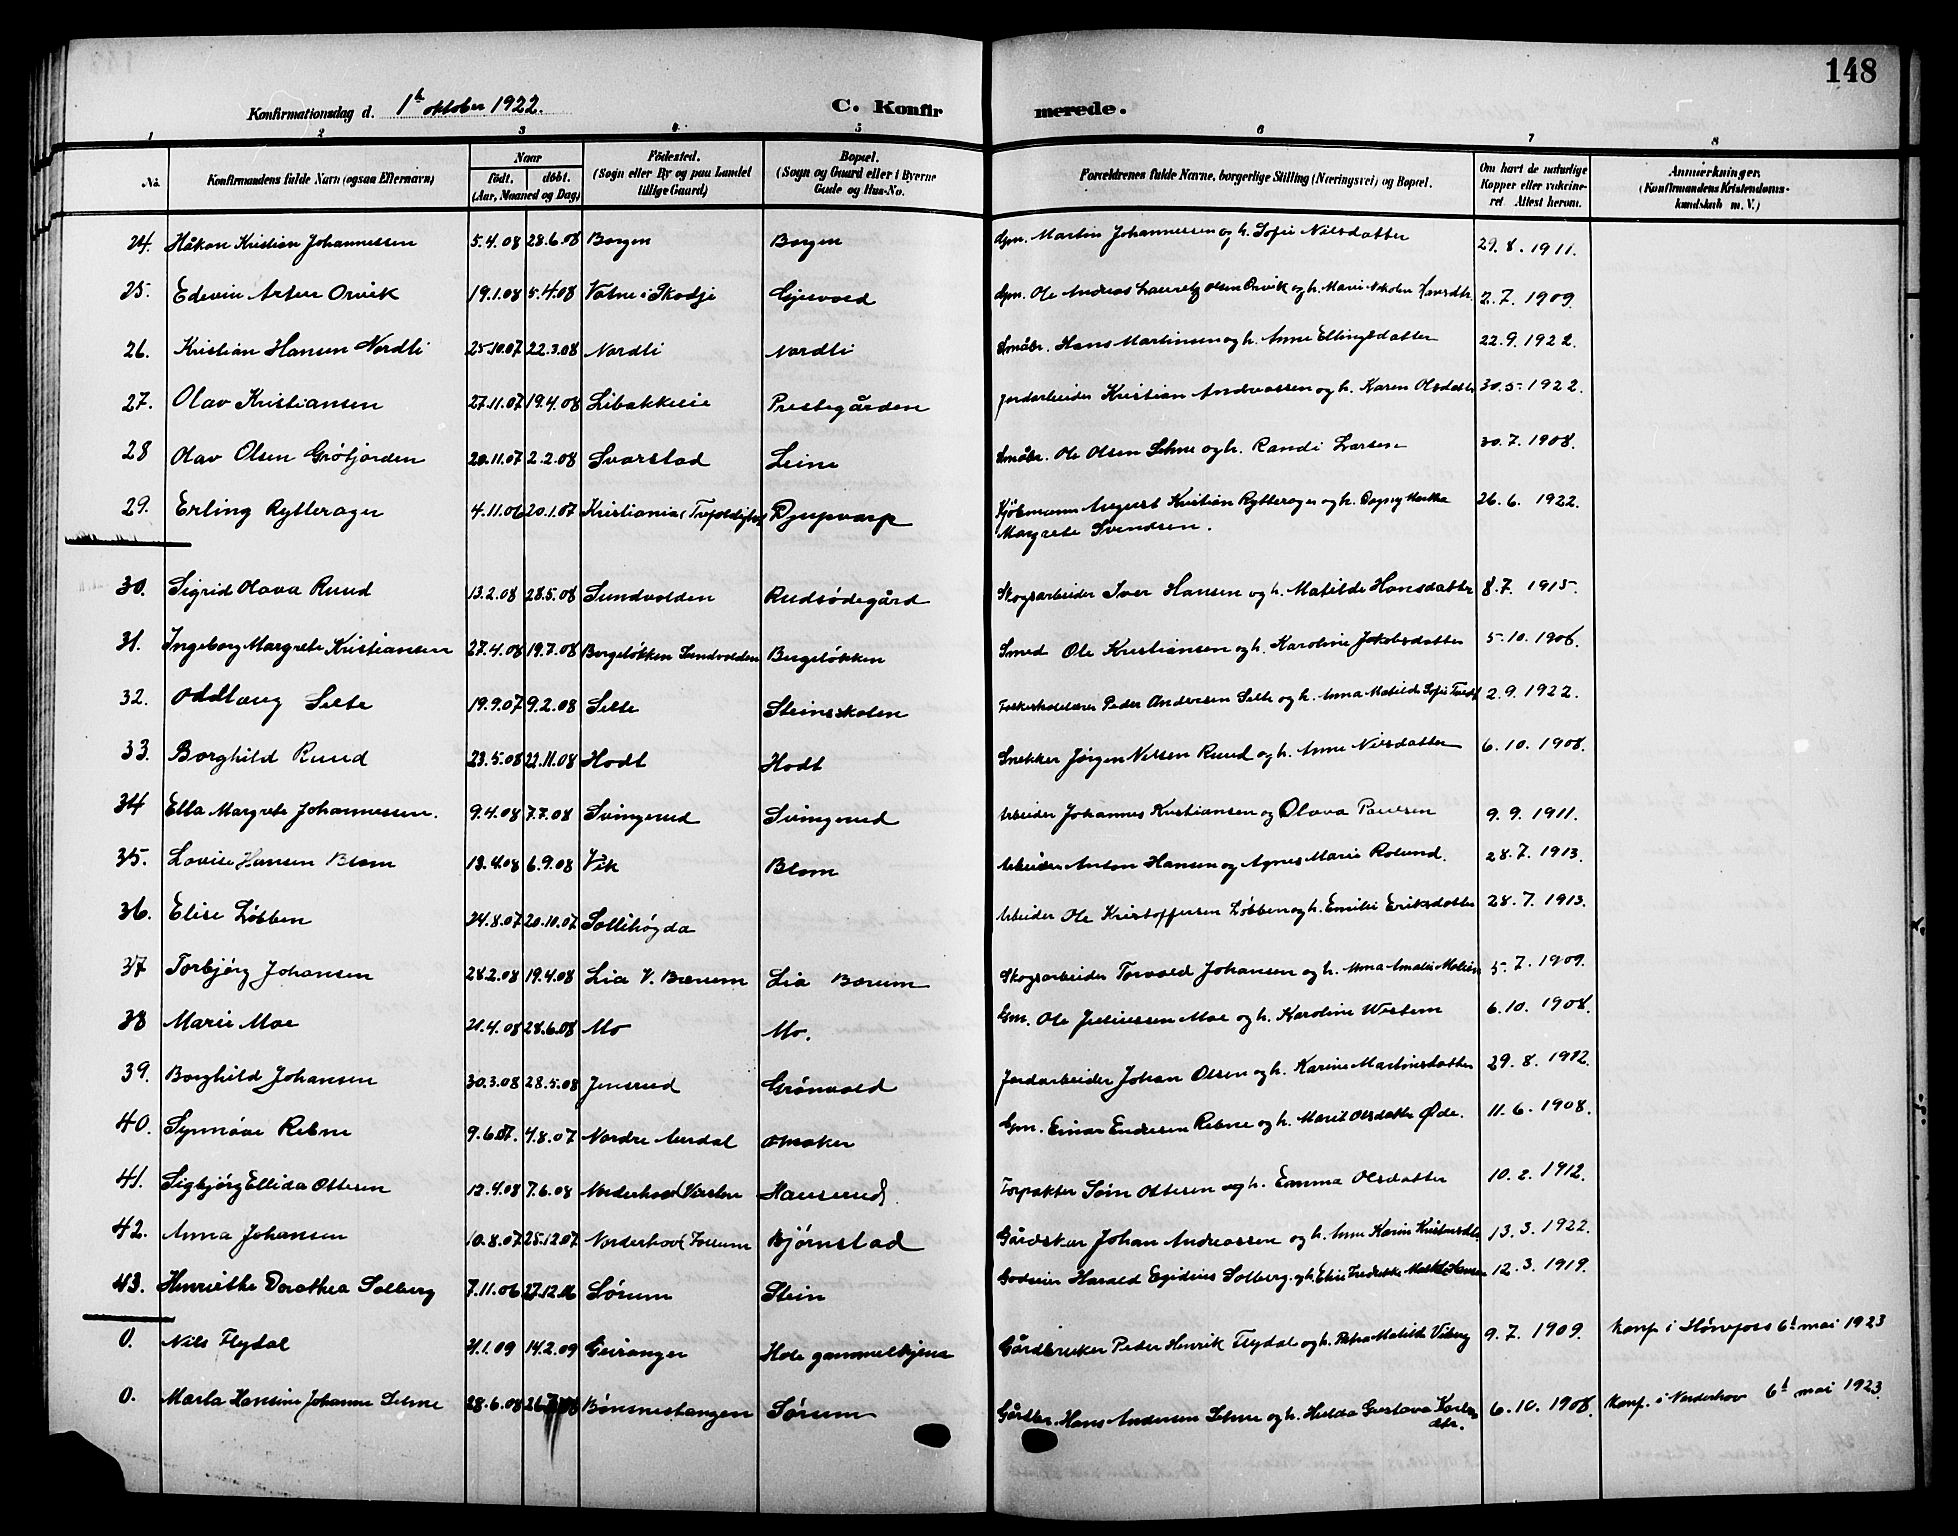 148
Konfirmationsdag d. 1ste oktober 1922. C. Konfirmerede.
1 2 3 4 5 6 7 8
No. Konfirmandens fulde Navn (ogsaa Efternavn) Naar født. døbt. (Aar, Maaned og Dag) Födested. (Sogn eller By og paa Landet tillige Gaard) Bopæl. (Sogn og Gaard eller i Byerne Gade og Hus-No. Forældrenes fulde Navne, borgerlige Stilling (Næringsvei) og Bopæl. Om havt de naturlige Kopper eller vakcineret. Attest herom. Anmærkninger. (Konfirmandens Kristendomskundskab m. V.)
24. Håkon Kristian Johannessen 5.4.08 28.6.08 Borgen Borgen Gm. Martin Johannessen og h. Sofie Nilsdatter 29.8.1911.
25. Edvin Artur Orvik 19.1.08 5.4.08 Vatne i Skodje Gjesvold Gm. Ole Andreas Lauritz Olsen Orvik og h. Marie Nikoline 2.7.1909.
26. Kristian Hansen Nordli 25.10.07 22.3.08 Nordli Nordli Småbr. Hans Martinsen og h. Anne Ellingsdatter 22.9.1922.
27. Olav Kristiansen 27.11.07 19.4.08 Libakkeie Prestegården Jordarbeider Kristian Andreassen og h. Karen Olsdatter 30.5.1922.
28 Olav Olsen Grøtjorden 20.11.07 2.2.08 Svarstad Leine Småbr. Ole Olsen Lehne og h. Randi Larsen 30.7.1908.
29. Erling Rytterager 4.11.06 20.1.07 Kristiania (Trefoldighet) Djupvarp Kjøbmann August Kristian Rytterager og h. Dagny Martha 26.6.1922.
Margrete Svendsen.
30. Sigrid Olava Ruud 13.2.08 28.5.08 Sundvolden Rudsødegård Skogsarbeider Iver Hansen og h. Matilde Hansdatter 8.7.1915.
31. Ingeborg Margrete Kristiansen 27.4.08 19.7.08 Bergeløkken Sundvolden Bergeløkken Smed Ole Kristiansen og h. Karoline Jakobsdatter 5.10.1908.
32. Oddlaug Selte 19.9.07 9.2.08 Selte Steinsskolen Peder Andersen Selte og h. Anna Matilde Sofie 2.9.1922.
33. Borghild Ruud 23.5.08 22.11.08 Hodt Hodt Snekker Jørgen Nilsen Ruud og h. Anne Nilsdatter 6.10.1908.
34 Ella Margrete Johannessen. 9.4.08 7.7.08 Svingerud Svingerud Arbeider Johannes Kristiansen og Olava Paulsen 9.9.1911.
35. Lovise Hansen Blom 13.4.08 6.9.08 Vik Blom Arbeider Anton Hansen og Agnes Marie Rolund. 28.7.1913.
36. Elise Løbben 24.8.07 20.10.07 Sollihøgda Arbeider Ole Kristoffersen Løbben og h. Emilie Eriksdatter 28.7.1913.
37 Torbjørg Johansen 28.2.08 19.4.08 Lia V. Bærum Lia Bærum Skogsarbeider Torvald Johansen og h. Anna Amalie 5.7.1909.
38 Marie Moe 21.4.08 28.6.08 Mo Mo. Gm. Ole Juliussen Moe og h. Karoline Western 6.10.1908.
39. Borghild Johansen 30.3.08 28.5.08 Jensrud Grønvold Jordarbeider Johan Olsen og h. Karine Martinsdatter 29.8.1912.
40. Synnøve Rebne 9.6.07. 4.8.07 Nordre Aurdal Onsaker Gm. Einar Endresen Rebne og h. Marit Olsdatter Øde. 11.6.1908.
41. Sigbjørg Ellida Ottesen 12.4.08 7.6.08 Norderhov Haugerud Forpakter Søin Ottesen og h. Emma Olsdatter 10.2.1912.
42. Anna Johansen 10.8.07 25.12.07 Norderhov Bjørnstad Gårdsbr. Johan Andreassen og h. Anne Karine Kristiansdtr 13.3.1922.
43. Henriette Dorothea Solberg 7.11.06 27.12.06 Sørum Stein Godseier Harald Egidius Solberg og h. Elise Fredrikke 12.3.1919.
0. Nils Flydal 4.1.09 14.2.09 Geiranger Hole gammelhjem Gårdbruker Peder Henrik Flydal og h. Petra Matilde Viberg 9.7.1909. Konf. i Hønefoss 6te mai 1923
0. Marta Hansine Johanne Lehne 28.6.08 26. .08 Bønsnestangen Sørum Gårdbr. Hans Andersen Lehne og h. Hulda Gustava Karls- 6.10.1908. Konf. i Norderhov 6te mai 1923.
dtr.